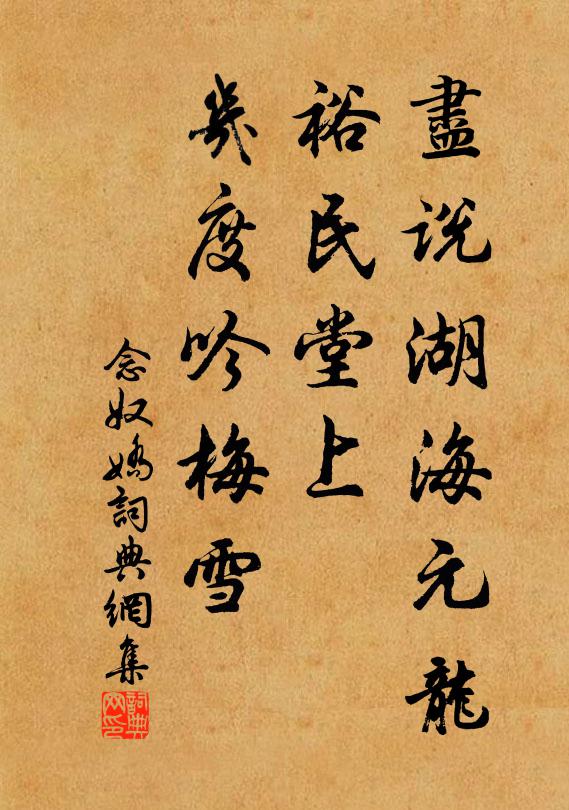 盡説湖海元龍
裕民堂上
幾度吟梅雪
念奴嬌詞典網集
詞典网印